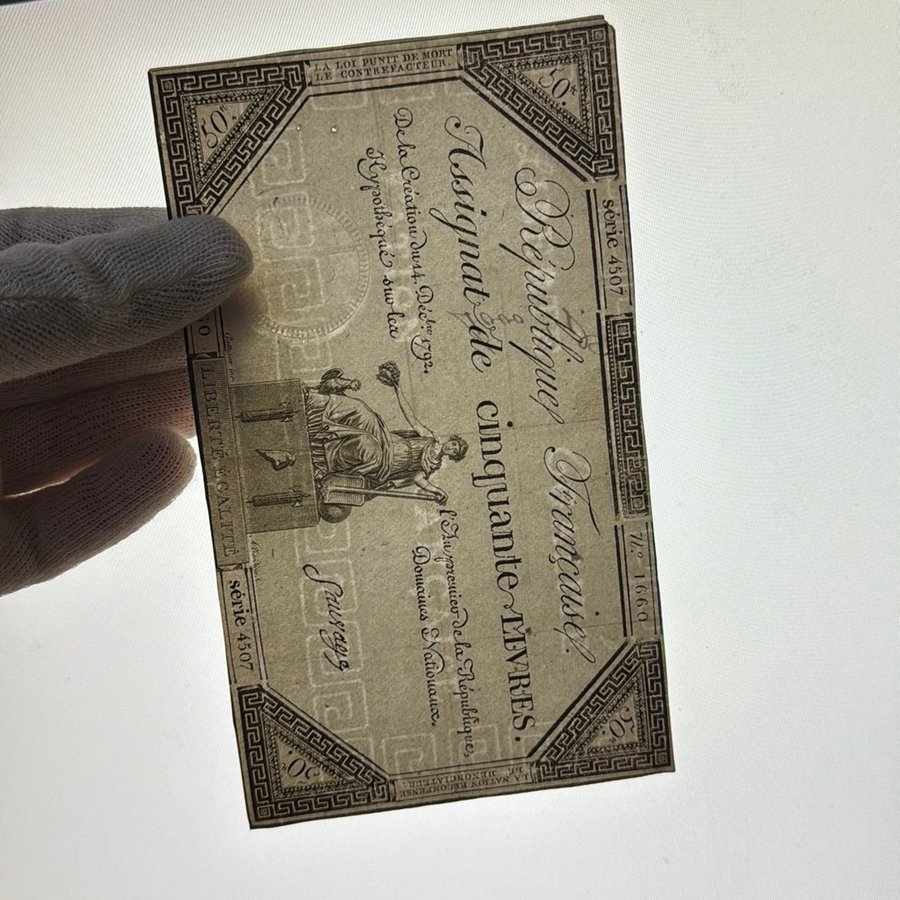 LA LOI PUNIT DE MORT
LE CONTREFACTEUR.
50ᵗᵗ
50ᵗᵗ
série 4507
N.º 1660
République Française.
Assignat de cinquante LIVRES.
De la Création du 14. Décbre 1792,
l'An premier de la République,
Hypothéqué sur les
Domaines Nationaux.
Sauvage
LIBERTÉ EGALITÉ
série 4507
50
50
LA NATION RECOMPENSE
LE DÉNONCIATEUR.